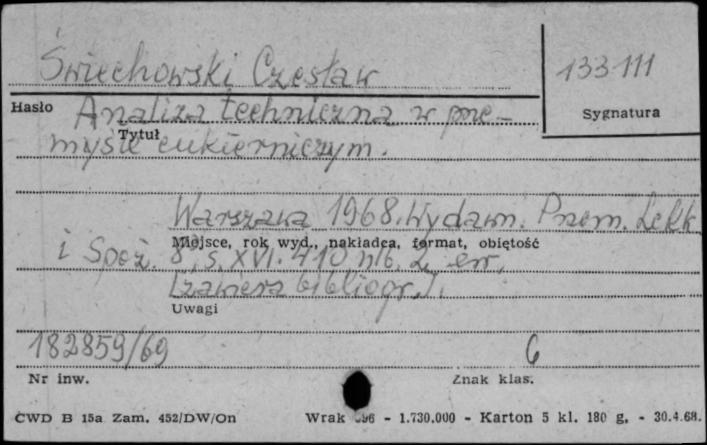 Świechowski Czesław
133111
Hasło
Sygnatura
Analiza techniczna w prze-
Tytuł
myśle cukierniczym.
Warszawa 1968. Wydawn. Przem. Lekk.
Miejsce, rok wyd., nakładca, format, obiętość
i Spoż. 8°, s. XVI. 410 nlb. 2, err.
[zawiera bibliogr.].
Uwagi
182859/69
6
Nr inw.
Znak klas.
CWD B 15a Zam. 452/DW/On Wrak 96 - 1.730.000 - Karton 5 kl. 180 g. - 30.4.68.